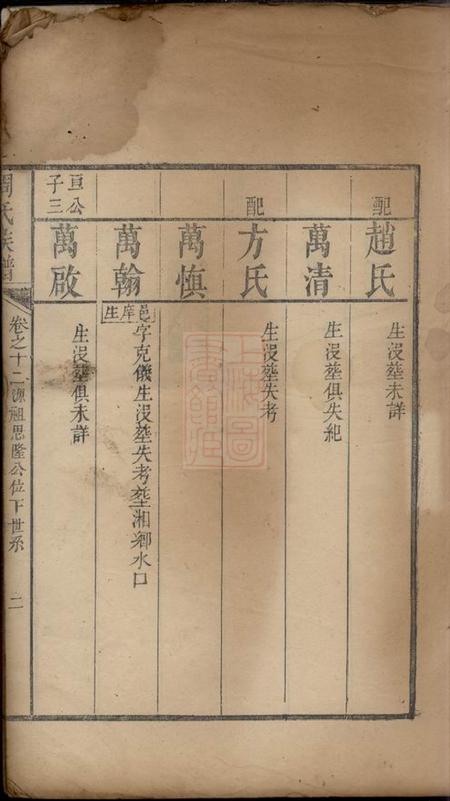 配
趙氏
生没塟未詳
萬清
生没塟俱失紀
配
方氏
生没塟失考
萬慎
萬翰
邑庠生
字克儀生没塟失考塟湘鄉水口
亘公
子三
萬啟
生没塟俱未詳
周氏族譜
卷之十二源祖思隆公位下世系
二
上海圖書館藏